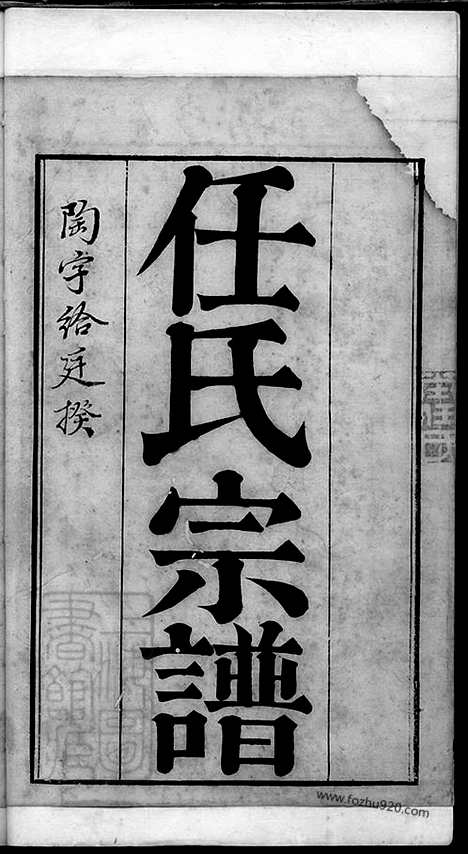 任氏宗譜
陶字給廷揆
www.fozhu920.com